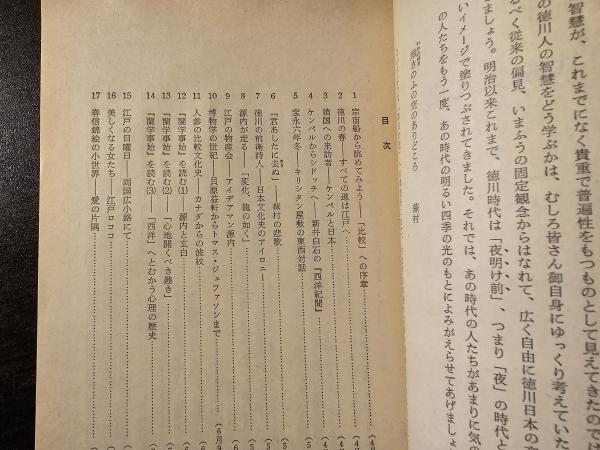 智慧が、これまでになく貴重で普遍性をもつものとして見えてきたので
の徳川人の智慧をどう学ぶかは、むしろ皆さん御自身にゆっくり考えていた
るべく従来の偏見、いまふうの固定観念からはなれて、広く自由に徳川日本の
ましょう。明治以来これまで、徳川時代は「夜明け前」、つまり「夜」の時代と
いイメージで塗りつぶされてきました。それでは、あの時代の人たちがあまりに気の
の人たちをもう一度、あの時代の明るい四季の光のもとによみがえらせてあげましょ
きのふの空のありどころ 蕪村
目次
1 宗旨船から眺めてみよう――「比較」への序章
2 徳川の春――すべての道は江戸へ
3 鎖国への来訪者――ケンペルと日本
4 ケンペルからシドッチへ――新井白石の『西洋紀聞』
5 宝永六年冬――キリシタン屋敷の東西対話
6 「君あしたに去ぬ」――蕪村の悲歌
7 徳川の前衛詩人――日本文化史のアイロニー
8 源内が走る――「変化、龍の如く」
9 江戸の物産会――アイデアマン源内
10 博物学の世紀――貝原益軒からトマス・ジェファソンまで
11 人参の比較文化史――カナダからの波紋
12 『蘭学事始』を読む(1) 源内と玄白
13 『蘭学事始』を読む(2) 「心地開くべき趣き」
14 『蘭学事始』を読む(3) 「西洋」へとむかう心理の歴史
15 江戸の日曜日――両国広小路にて
16 美しくなる女たち――江戸ロココ
17 春信錦絵の小世界――愛の片隅